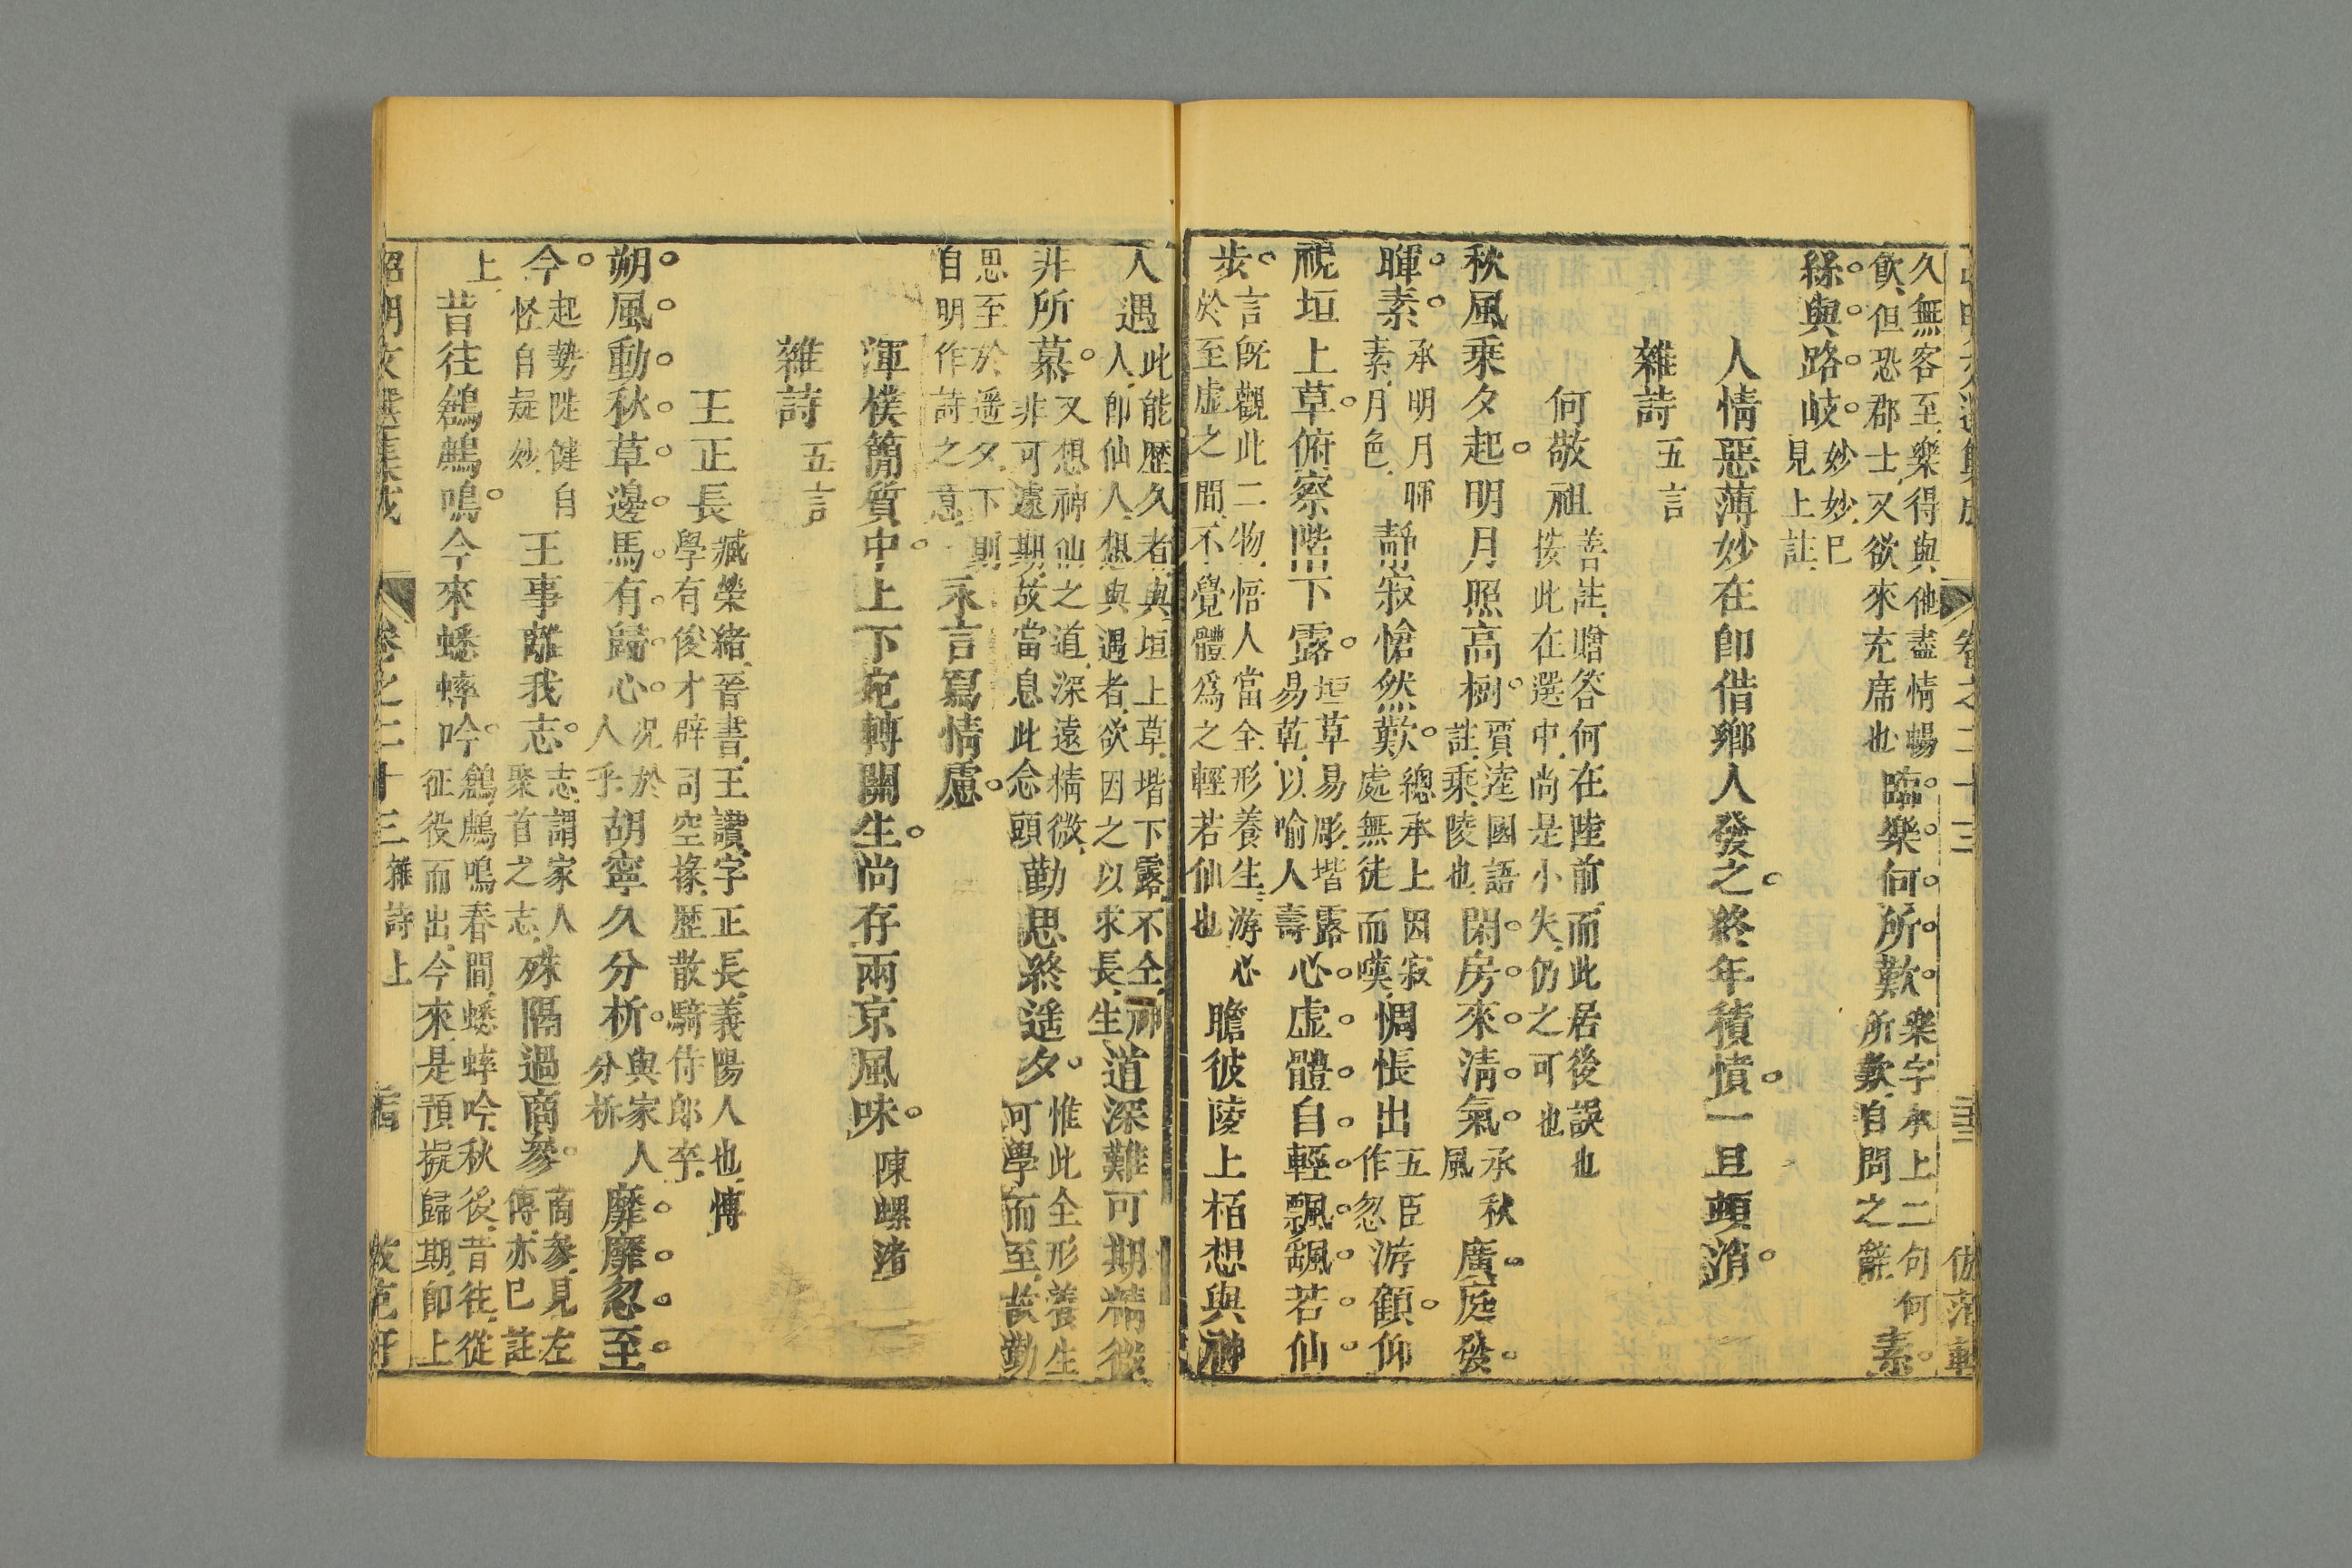 久無客至樂得與他盡情暢
飲但恐郡士又欲來充席也臨樂何所歎樂字承上二句何
所歎自問之辭素
絲與路岐妙妙巳
見上註
人情惡薄妙在即借鄉人發之終年積憤一旦頓消
雜詩五言
何敬祖善註贈答何在陸前而此居後誤也
按此在選中尚是小失仍之可也
秋風乘夕起明月照高樹賈逵國語
註乘陵也閑房來清氣承秋
風廣庭發
暉素承明月
素月色靜寂愴然歎總承上因寂
處無徒而嘆惆悵出五臣
作忽游顧仰
視垣上草俯察階下露垣草易彫堦露
易乾以喻人壽心虛體自輕飄颻若仙
步言旣觀此二物悟人當全形養生游心
於至虛之間不覺體爲之輕若仙也瞻彼陵上栢想與神
人遇此能歷久者與垣上草堦下露不仝神
人即仙人想與遇者欲因之以求長生道深難可期精微
非所慕又想神仙之道深遠精微
非可遽期故當息此念頭勤思終遥夕惟此全形養生
可學而至故勤
思至於遥夕下則
自明作詩之意永言寫情慮
渾樸簡質中上下宛轉關生尚存兩京風味陳螺渚
雜詩五言
王正長臧榮緒晉書王讚字正長義陽人也博
學有俊才辟司空掾歷散騎侍郎卒
朔風動秋草邊馬有歸心况於
人乎胡寧久分析與家人
分析靡靡忽至
今起勢陡健自
怪自疑妙王事離我志志謂家人
聚首之志殊隔過商參商參見左
傳亦巳註
上昔往鶬鶊鳴今來蟋蟀吟鶬鶊鳴春間蟋蟀吟秋後昔往從
征役而出今來是預擬歸期即上
卷之二十三雜詩上